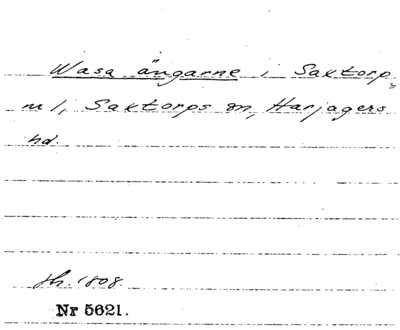 Wasa ängarne i Saxtorp
nr 1, Saxtorps sn, Harjagers
hd.
sh. 1808.
Nr 5621.